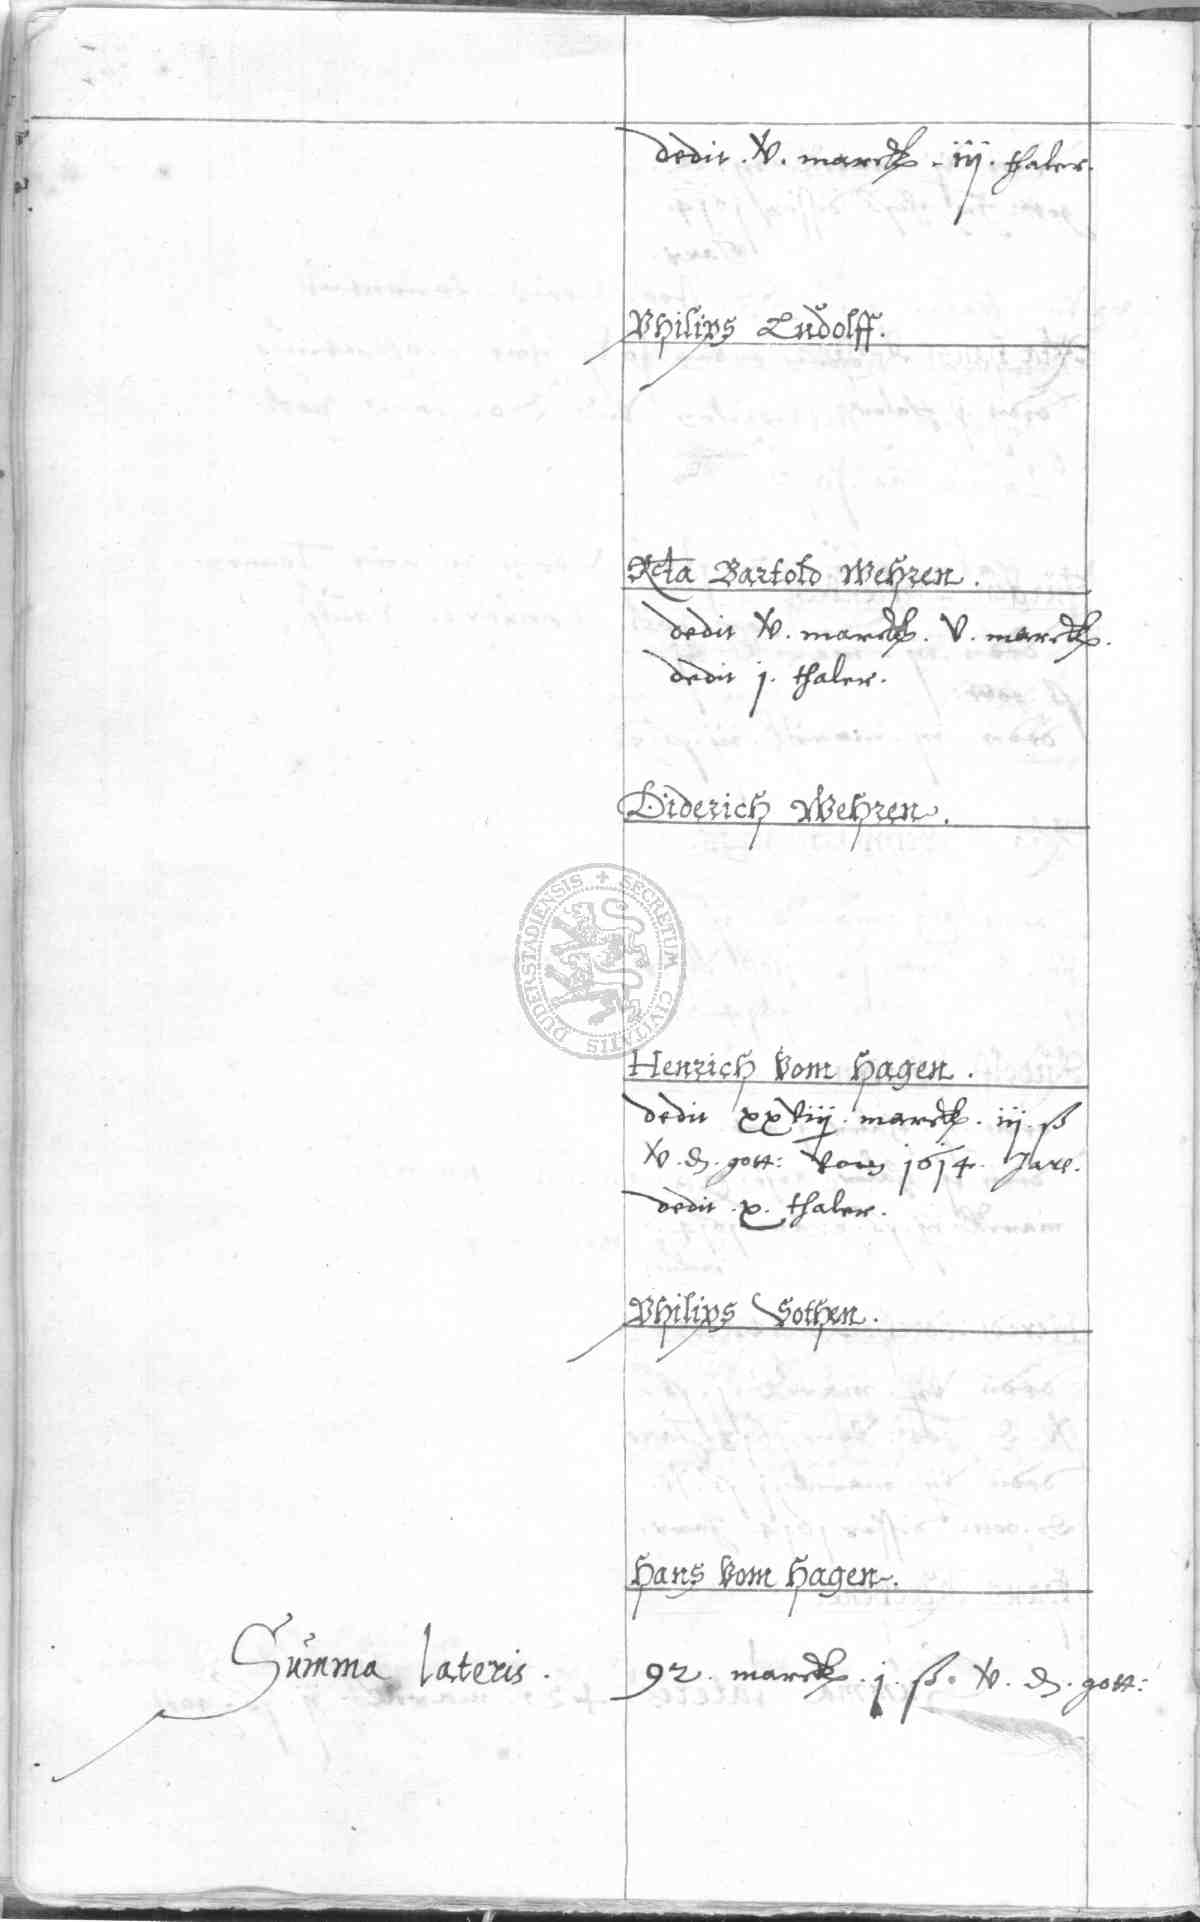 dedit . x. marck . iij . thaler.
Philips Ludolff.
Rcta Bartold Wehren .
dedit x. marck . v. marck .
dedit j. thaler .
Diderich Wehren .
SECRETUM CIVITATIS DUDERSTADIENSIS
Henrich Vom Hagen .
dedit xxviij . marck . iij . ß
x . d . gott: Vom 1614 . Jare .
dedit . x . thaler .
Philips Sothen .
Hans Vom Hagen .
Summa lateris . 92 . marck . j . ß . x . d . gott: